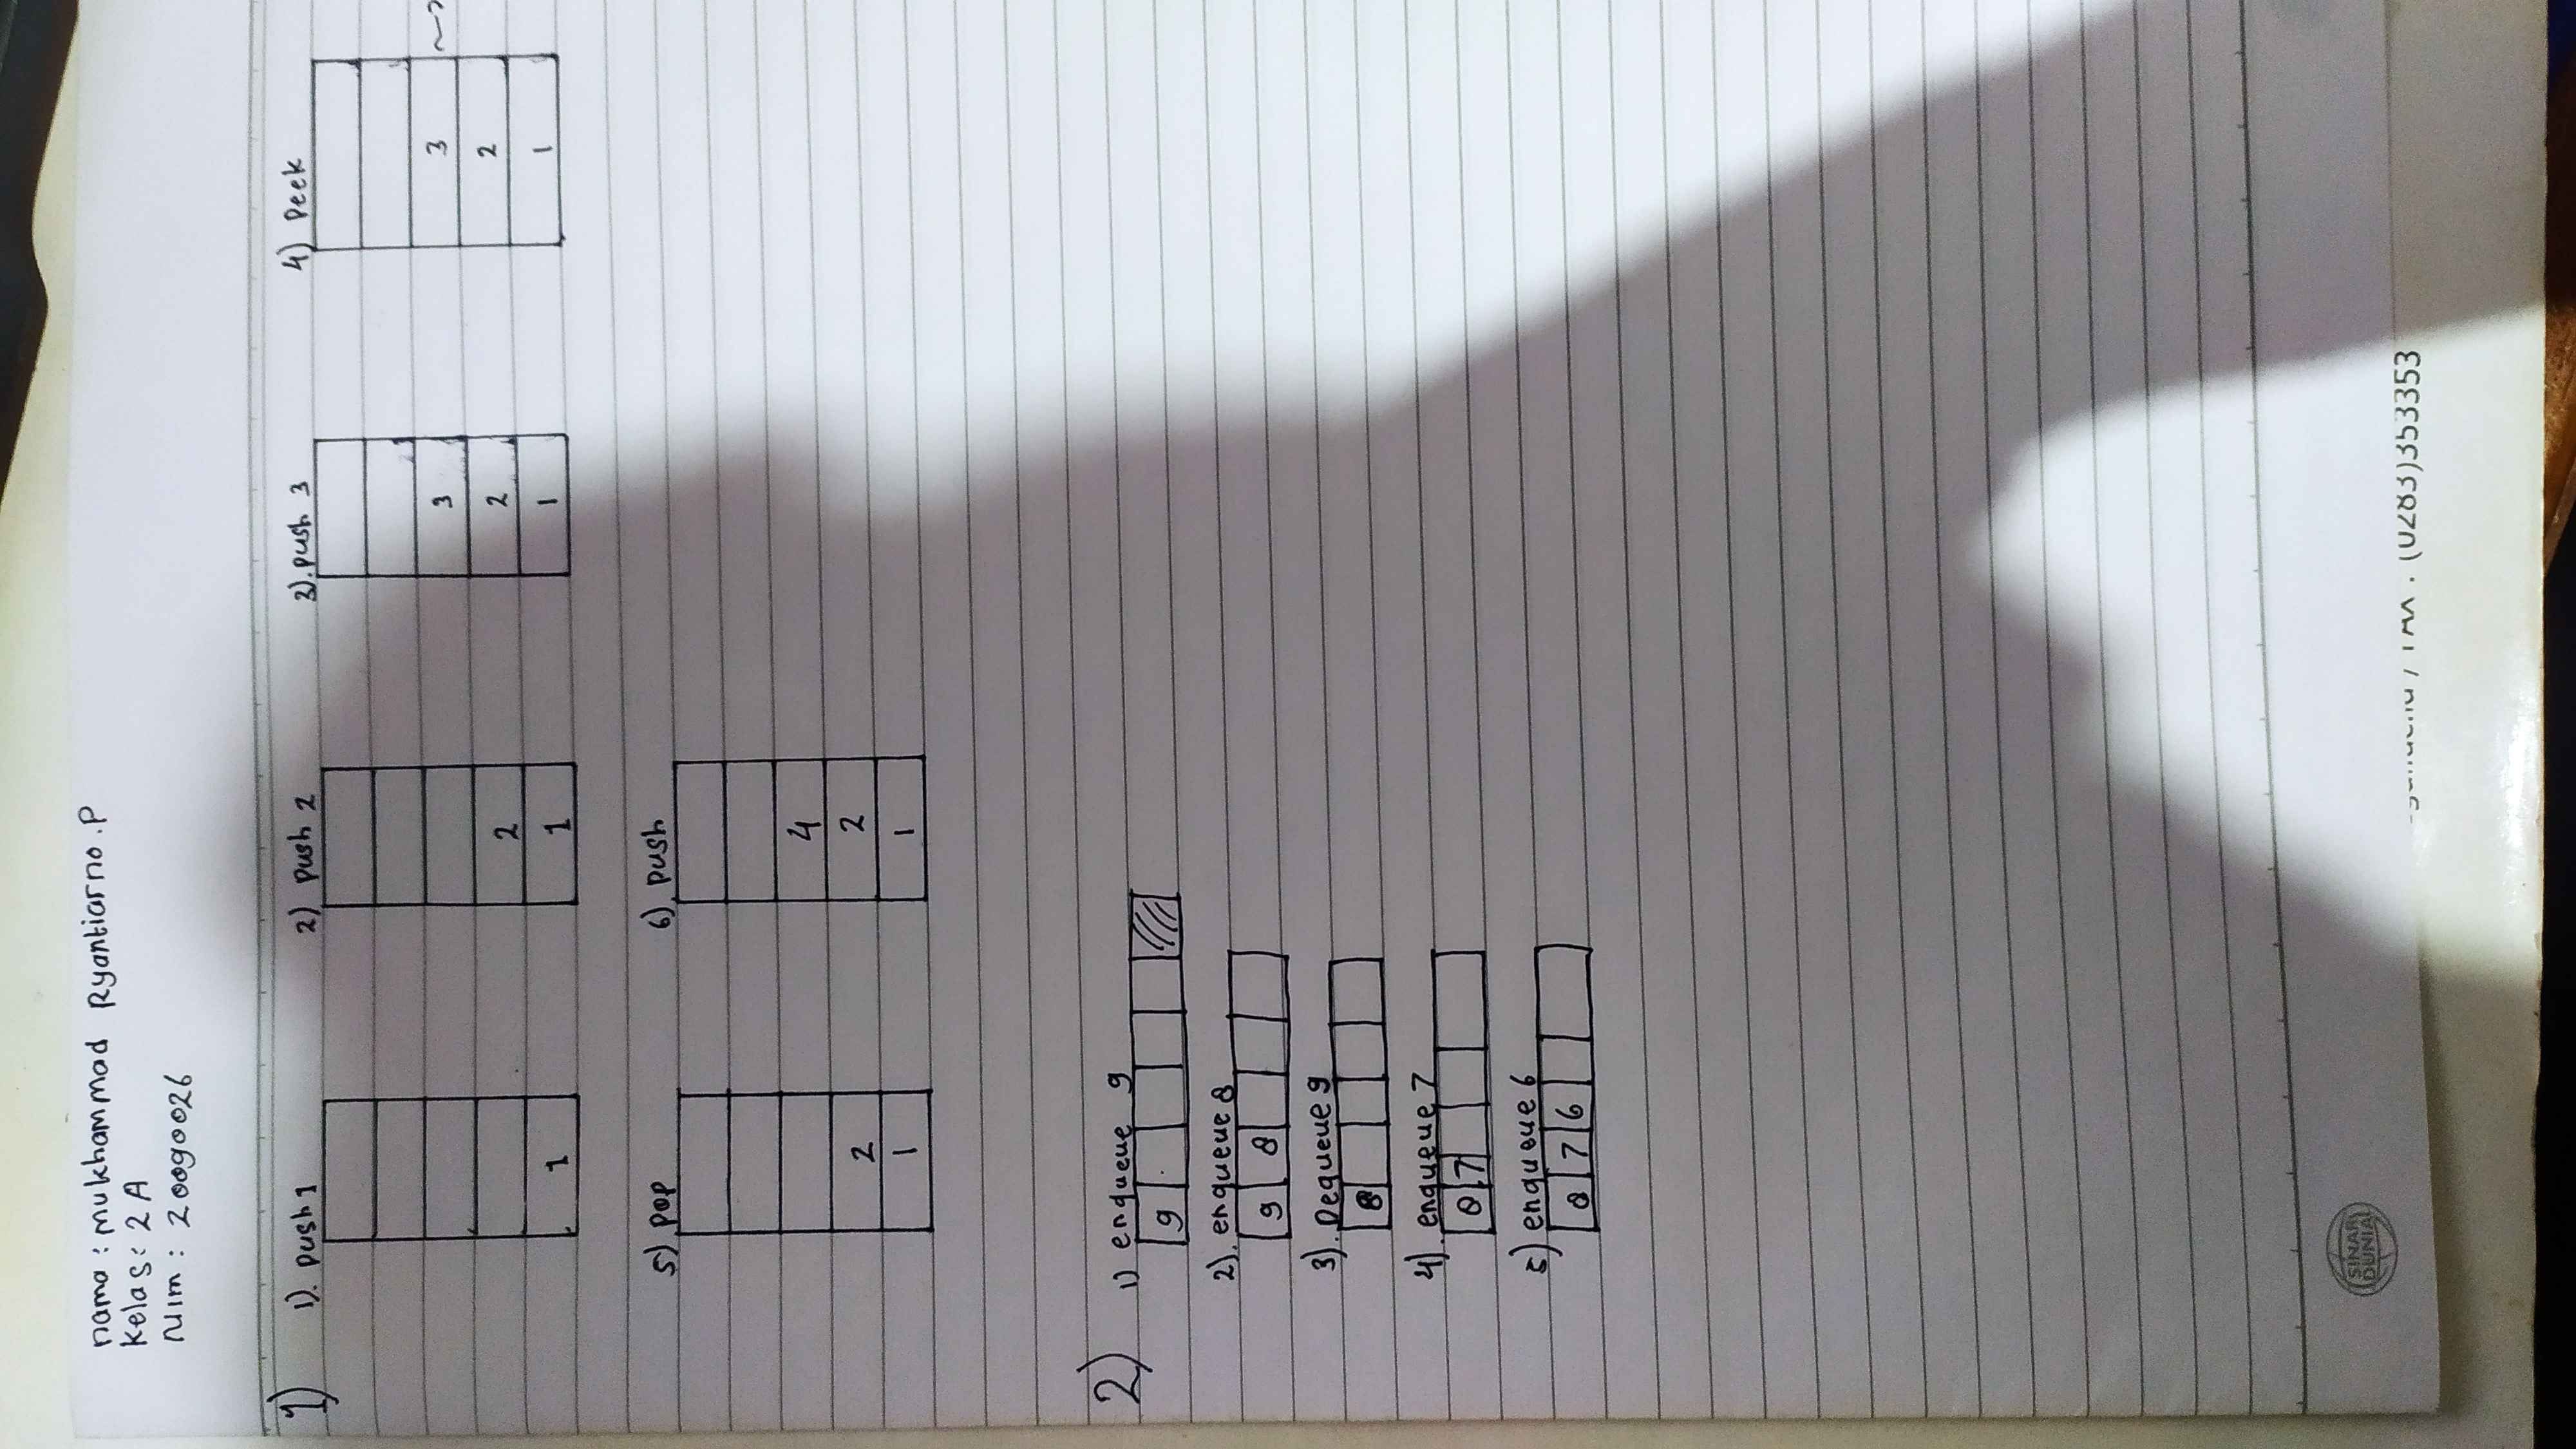 nama : Mukhammad Ryantiarno.P
Kelas : 2 A
Nim : 20090026
1) 1). Push 1 2) Push 2 3). push 3 4) Peek
3 3
2 2 2
1 1 1 1
5) POP 6) Push
4
2 2
1 1
2) 1) enqueue 9
9
2). enqueue 8
9 8
3). Dequeue 9
8
4). enqueue 7
8 7
5) enqueue 6
8 7 6
SINAR
DUNIA
/ FAX : (0283)353353